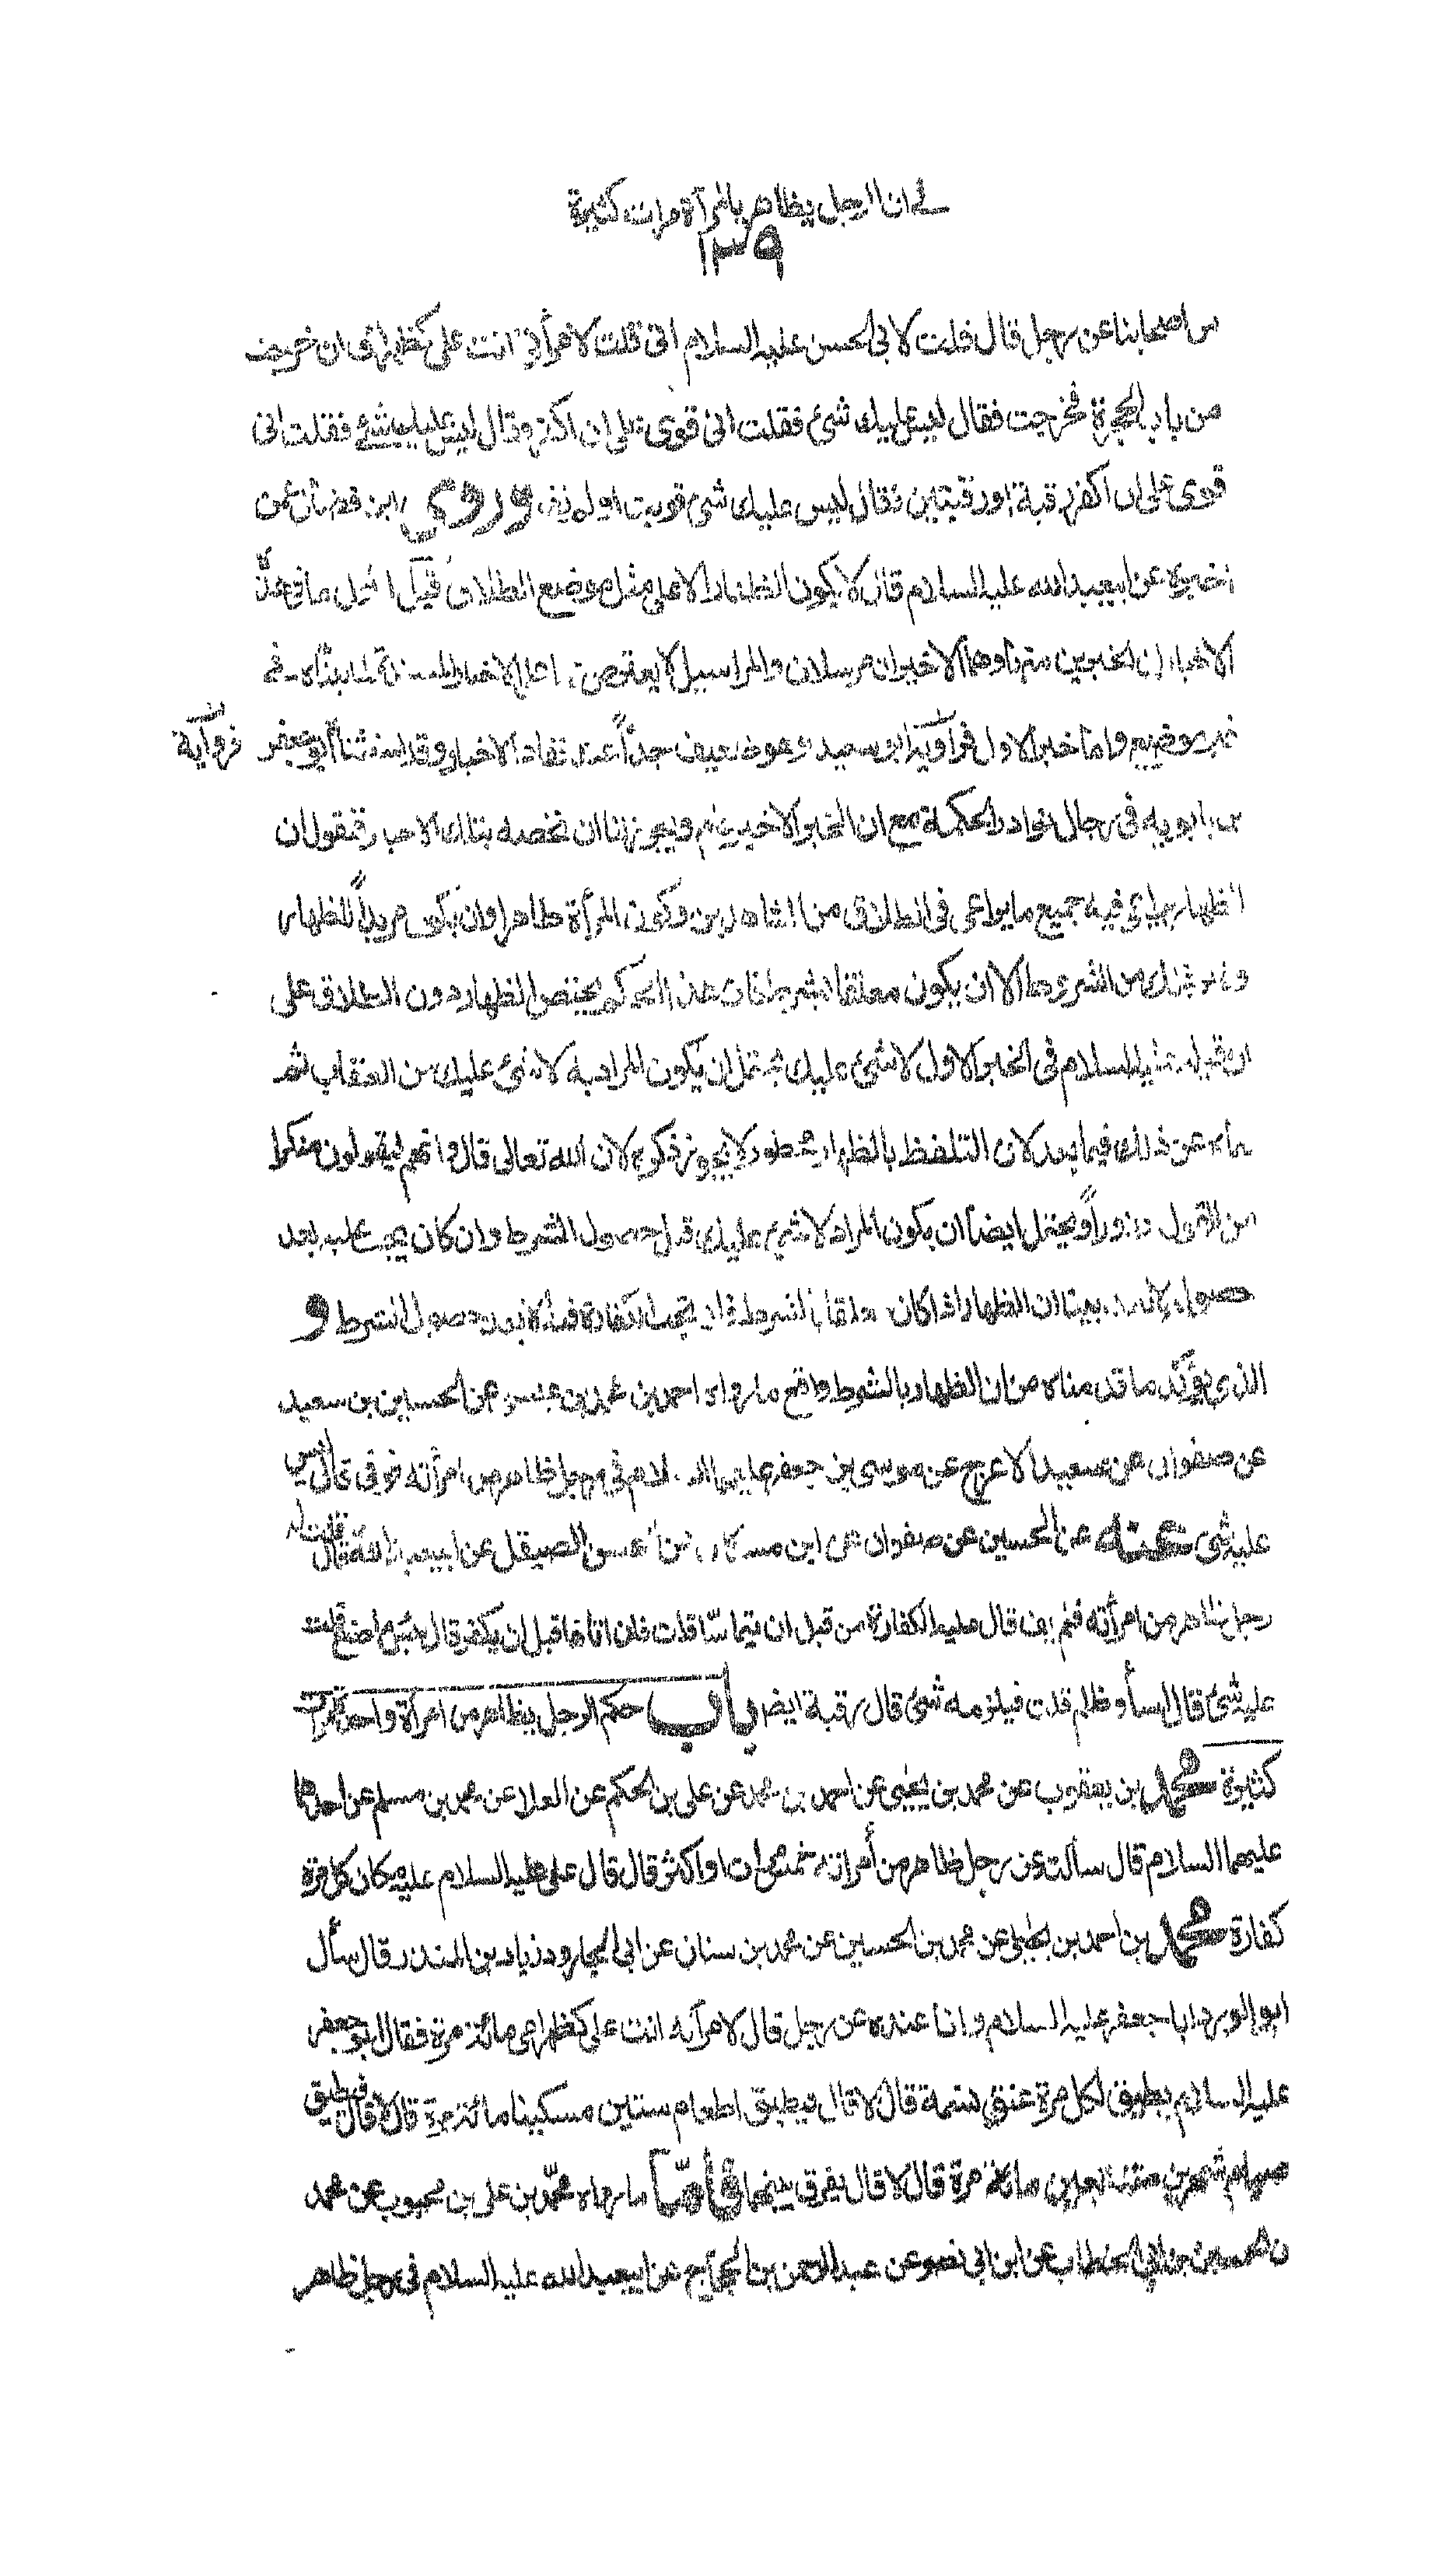 في ان الرجل يظاهر بامرأة مرات كثيرة
١٣٩
من اصحابنا عن رجل قال قلت لابى الحسن عليه السلام انى قلت لامرأتى انت على كظهر امى ان خرجت
من باب الحجرة فخرجت فقال ليس عليك شئ فقلت انى قوى على ان اكفر فقال ليس عليك شئ فقلت انى
قوى على ان اكفر رقبة او رقبتين فقال ليس عليك شئ قويت او لم تقو وروى ابن فضال عمن
اخبره عن ابيعبد الله عليه السلام قال لا يكون الظهار الا على مثل موضع الطلاق قيل اول ما فى هذه
الاخبار ان الخبرين منها وهما الاخيران مرسلان والمراسيل لا يعترض بها على الاخبار المسندة لما بيناه فى
غير موضع واما الخبر الاول فراويه ابو سعيد وهو ضعيف جداً عند نقاد الاخبار وقد استثناه ابو جعفر
فى رواية
بن بابويه فى رجال نوادر الحكمة مع ان الخبر الاخير عام ويجوز لنا ان نخصه بتلك الاخبار فنقول ان
الظهار يراعى فيه جميع ما يراعى فى الطلاق من الشاهدين وتكون المرأة طاهرا وان يكون مريداً للظهار
وغير ذلك من الشروط الا ان يكون معلقا بشرط فان هذا الحكم يختص الظهار دون الطلاق على
ان قوله عليه السلام فى الخبر الاول لا شئ عليك يحتمل ان يكون المراد به لا شئ عليك من العقاب ثم
نهاه عن ذلك فيما بعد لان التلفظ بالظهار محظور لا يجوز ذكره لان الله تعالى قال وانهم ليقولون منكرا
من القول وزوراً ويحتمل ايضا ان يكون المراد لا شئ عليك قبل حصول الشرط وان كان يجب عليه بعد
حصوله لانا قد بينا ان الظهار اذا كان معلقا بالشرط فانما تجب الكفارة فيه بعد حصول الشرط و
الذى يؤكد ما قدمناه من ان الظهار بالشرط واقع ما رواه احمد بن محمد بن عيسى عن الحسين بن سعيد
عن صفوان عن سعيد الاعرج عن موسى بن جعفر عليهما السلام فى رجل ظاهر من امرأته فوفى قال ليس
عليه شئ عنه عن الحسين عن صفوان عن ابن مسكان عن الحسن الصيقل عن ابيعبد الله قال قلت له
رجل ظاهر من امرأته فلم يف قال عليه الكفارة من قبل ان يتماسا قلت فان اتاها قبل ان يكفر قال بئس ما صنع قلت
عليه شئ قال اساء وظلم قلت فيلزمه شئ قال رقبة ايضا باب حكم الرجل يظاهر من امرأة واحدة مرات
كثيرة محمد بن يعقوب عن محمد بن يحيى عن احمد بن محمد عن على بن الحكم عن العلا عن محمد بن مسلم عن احدهما
عليهما السلام قال سألته عن رجل ظاهر من أمرأته خمس مرات او اكثر قال قال على عليه السلام عليه مكان كل مرة
كفارة محمد بن احمد بن يحيى عن محمد بن الحسين عن محمد بن سنان عن ابى الجارود زياد بن المنذر قال سأل
ابو الورد ابا جعفر عليه السلام وانا عنده عن رجل قال لامرأته انت على كظهر امى مائة مرة فقال ابو جعفر
عليه السلام يطيق لكل مرة عتق نسمة قال لا قال فيطيق اطعام ستين مسكينا مائة مرة قال لا قال فيطيق
صيام شهرين متتابعين مائة مرة قال لا قال يفرق بينهما فأمّا ما رواه محمّد بن على بن محبوب عن محمد
بن الحسين بن ابى الخطاب عن ابن ابى نصر عن عبد الرحمن بن الحجاج عن ابيعبد الله عليه السلام فى رجل ظاهر